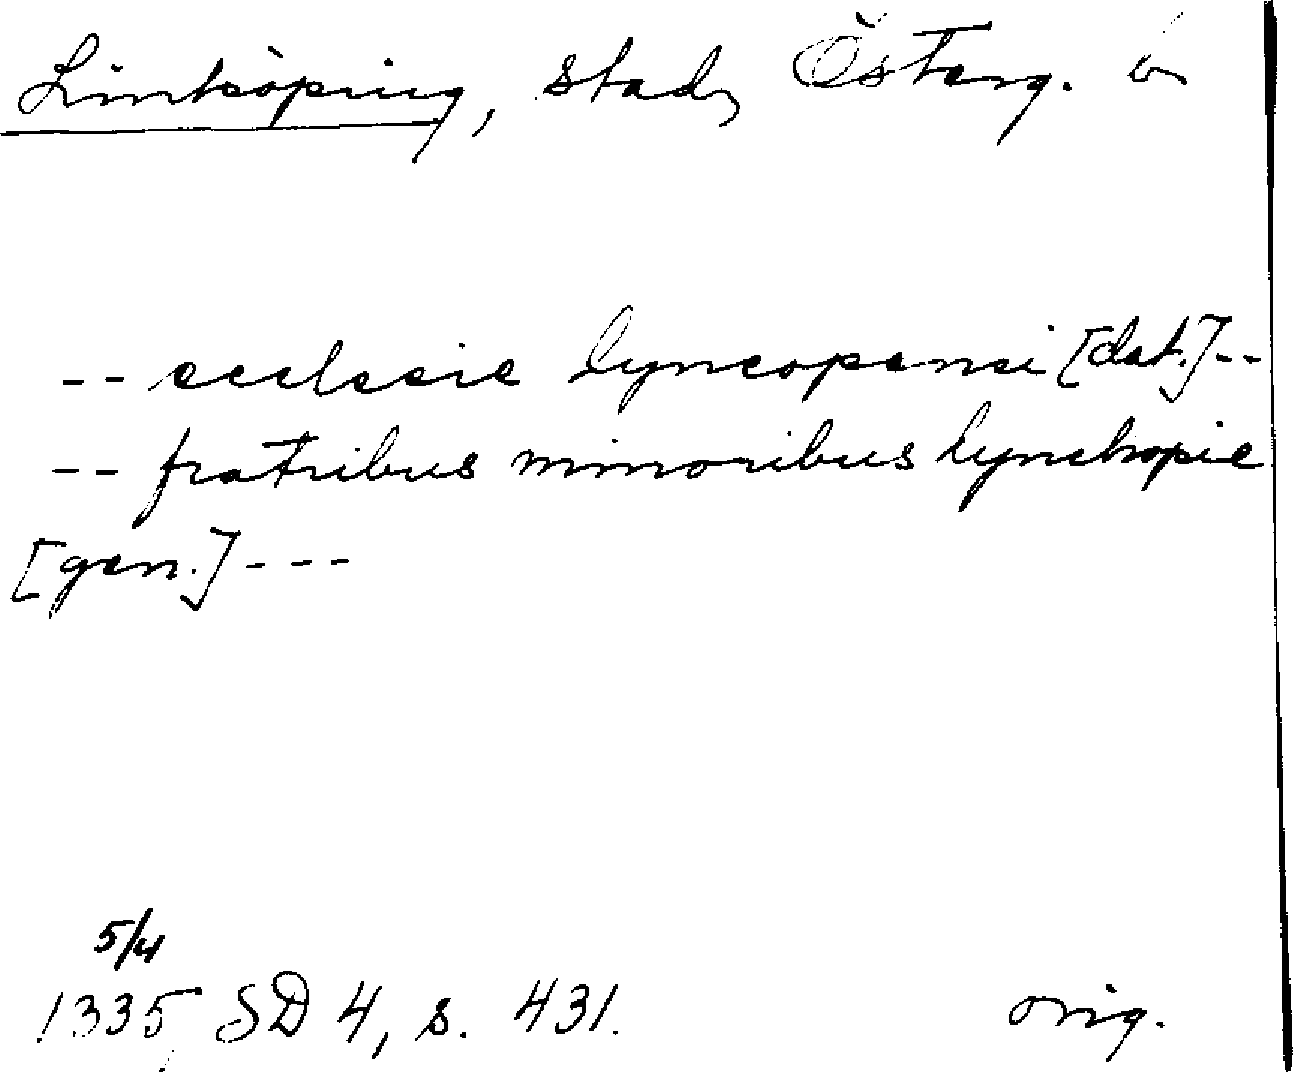 Linköping, stad, Österg.
-- ecclesie lyncopensi [dat.] --
-- fratribus minoribus lynchopie
[gen.] ---
5/4
1335, SD 4, s. 431. orig.